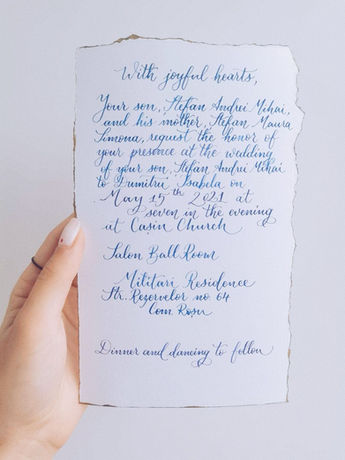 With joyful hearts,
Your son, Stefan Andrei Mihai,
and his mother, Stefan Maura
Simona, request the honor of
your presence at the wedding
of your son, Stefan Andrei Mihai
to Dumitru Isabela on
May 15th 2021 at
seven in the evening
at Casin Church
Salon Ball Room
Militari Residence
Str. Rezervelor no 64
Com. Roșu
Dinner and dancing to follow